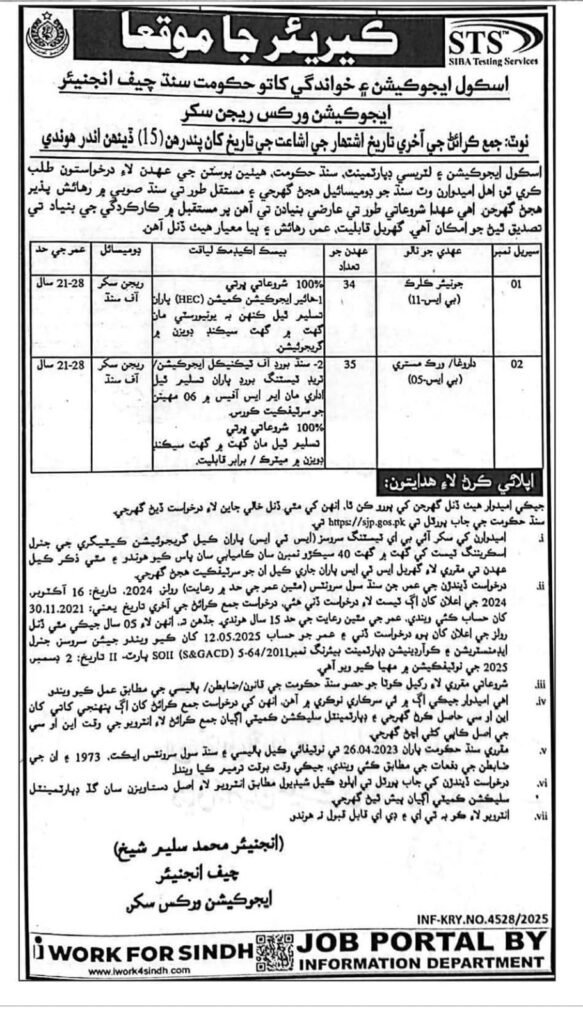 ڪيريئر جا موقعا
STS™
SIBA Testing Services
اسڪول ايجوڪيشن ۽ خواندگي کاتو حڪومت سنڌ چيف انجنيئر
ايجوڪيشن ورڪس ريجن سکر
نوٽ: جمع ڪرائڻ جي آخري تاريخ اشتهار جي اشاعت جي تاريخ کان پندرهن (15) ڏينهن اندر هوندي
اسڪول ايجوڪيشن ۽ لٽريسي ڊپارٽمينٽ، سنڌ حڪومت، هيٺين پوسٽن جي عهدن لاءِ درخواستون طلب
ڪري ٿو. اهل اميدوارن وٽ سنڌ جو ڊوميسائيل هجڻ گهرجي ۽ مستقل طور تي سنڌ صوبي ۾ رهائش پذير
هجڻ گهرجن. اهي عهدا شروعاتي طور تي عارضي بنيادن تي آهن پر مستقبل ۾ ڪارڪردگي جي بنياد تي
تصديق ٿيڻ جو امڪان آهي. گهربل قابليت، عمر، رهائش ۽ ٻيا معيار هيٺ ڏنل آهن.
سيريل نمبر
عهدي جو نالو
عهدن جو تعداد
بيسڪ اڪيڊمڪ لياقت
ڊوميسائل
عمر جي حد
01
جونيئر ڪلرڪ
(بي ايس-11)
34
100% شروعاتي ڀرتي
1-هائير ايجوڪيشن ڪميشن (HEC) پاران
تسليم ٿيل ڪنهن به يونيورسٽي مان
گهٽ ۾ گهٽ سيڪنڊ ڊويزن ۾
گريجوئيشن.
ريجن سکر
آف سنڌ
21-28 سال
02
داروغا/ ورڪ مستري
(بي ايس-05)
35
2- سنڌ بورڊ آف ٽيڪنيڪل ايجوڪيشن/
ٽريڊ ٽيسٽنگ بورڊ پاران تسليم ٿيل
اداري مان ايم ايس آفيس ۾ 06 مهينن
جو سرٽيفڪيٽ ڪورس.
100% شروعاتي ڀرتي
تسليم ٿيل مان گهٽ ۾ گهٽ سيڪنڊ
ڊويزن ۾ ميٽرڪ / برابر قابليت.
ريجن سکر
آف سنڌ
21-28 سال
اپلائي ڪرڻ لاءِ هدايتون:
جيڪي اميدوار هيٺ ڏنل گهرجن کي پورو ڪن ٿا، انهن کي مٿي ڏنل خالي جاين لاءِ درخواست ڏيڻ گهرجي.
سنڌ حڪومت جي جاب پورٽل تي https://sjp.gos.pk تي.
i. اميدوارن کي سکر آئي بي اي ٽيسٽنگ سروسز (ايس ٽي ايس) پاران ڪيل گريجوئيشن ڪيٽيگري جي جنرل
اسڪريننگ ٽيسٽ کي گهٽ ۾ گهٽ 40 سيڪڙو نمبرن سان ڪاميابي سان پاس ڪيو هوندو ۽ مٿي ذڪر ڪيل
عهدن تي مقرري لاءِ گهربل ايس ٽي ايس پاران جاري ڪيل ان جو سرٽيفڪيٽ هجڻ گهرجي.
ii. درخواست ڏيندڙن جي عمر جن سنڌ سول سرونٽس (مٿين عمر جي حد ۾ رعايت) رولز، 2024، تاريخ: 16 آڪٽوبر،
2024 جي اعلان کان اڳ ٽيسٽ لاءِ درخواست ڏني هئي، درخواست جمع ڪرائڻ جي آخري تاريخ يعني: 30.11.2021
کان حساب ڪئي ويندي، عمر جي مٿين رعايت جي حد 15 سال هوندي. جڏهن ته، انهن لاءِ 05 سال جيڪي مٿي ڏنل
رولز جي اعلان کان پوءِ درخواست ڏني ۽ عمر جو حساب 12.05.2025 کان ڪيو ويندو جيئن سروسز، جنرل
ايڊمنسٽريشن ۽ ڪوآرڊينيشن ڊپارٽمينٽ بيئرنگ نمبر SOII (S&GACD) 5-64/2011 پارٽ- II تاريخ: 2 ڊسمبر،
2025 جي نوٽيفڪيشن ۾ مهيا ڪيو ويو آهي.
iii. شروعاتي مقرري لاءِ رکيل ڪوٽا جو حصو سنڌ حڪومت جي قانون/ضابطن/ پاليسي جي مطابق عمل ڪيو ويندو
iv. اهي اميدوار جيڪي اڳ ۾ ئي سرڪاري نوڪري ۾ آهن، انهن کي درخواست جمع ڪرائڻ کان اڳ پنهنجي کاتي کان
اين او سي حاصل ڪرڻ گهرجي ۽ ڊپارٽمينٽل سليڪشن ڪميٽي اڳيان جمع ڪرائڻ لاءِ انٽرويو جي وقت اين او سي
جي اصل ڪاپي کڻي اچڻ گهرجي.
v. مقرري سنڌ حڪومت پاران 26.04.2023 تي نوٽيفائي ڪيل پاليسي ۽ سنڌ سول سرونٽس ايڪٽ، 1973 ۽ ان جي
ضابطن جي دفعات جي مطابق ڪئي ويندي، جيڪي وقت بوقت ترميم ڪيا ويندا.
vi. درخواست ڏيندڙن کي جاب پورٽل تي اپلوڊ ڪيل شيڊيول مطابق انٽرويو لاءِ اصل دستاويزن سان گڏ ڊپارٽمينٽل
سليڪشن ڪميٽي اڳيان پيش ٿيڻ گهرجي.
vii. انٽرويو لاءِ ڪو به ٽي اي ۽ ڊي اي قابل قبول نه هوندو
(انجنيئر محمد سليم شيخ)
چيف انجنيئر
ايجوڪيشن ورڪس سکر
INF-KRY.NO.4528/2025
i WORK FOR SINDH
www.iwork4sindh.com
JOB PORTAL BY
INFORMATION DEPARTMENT